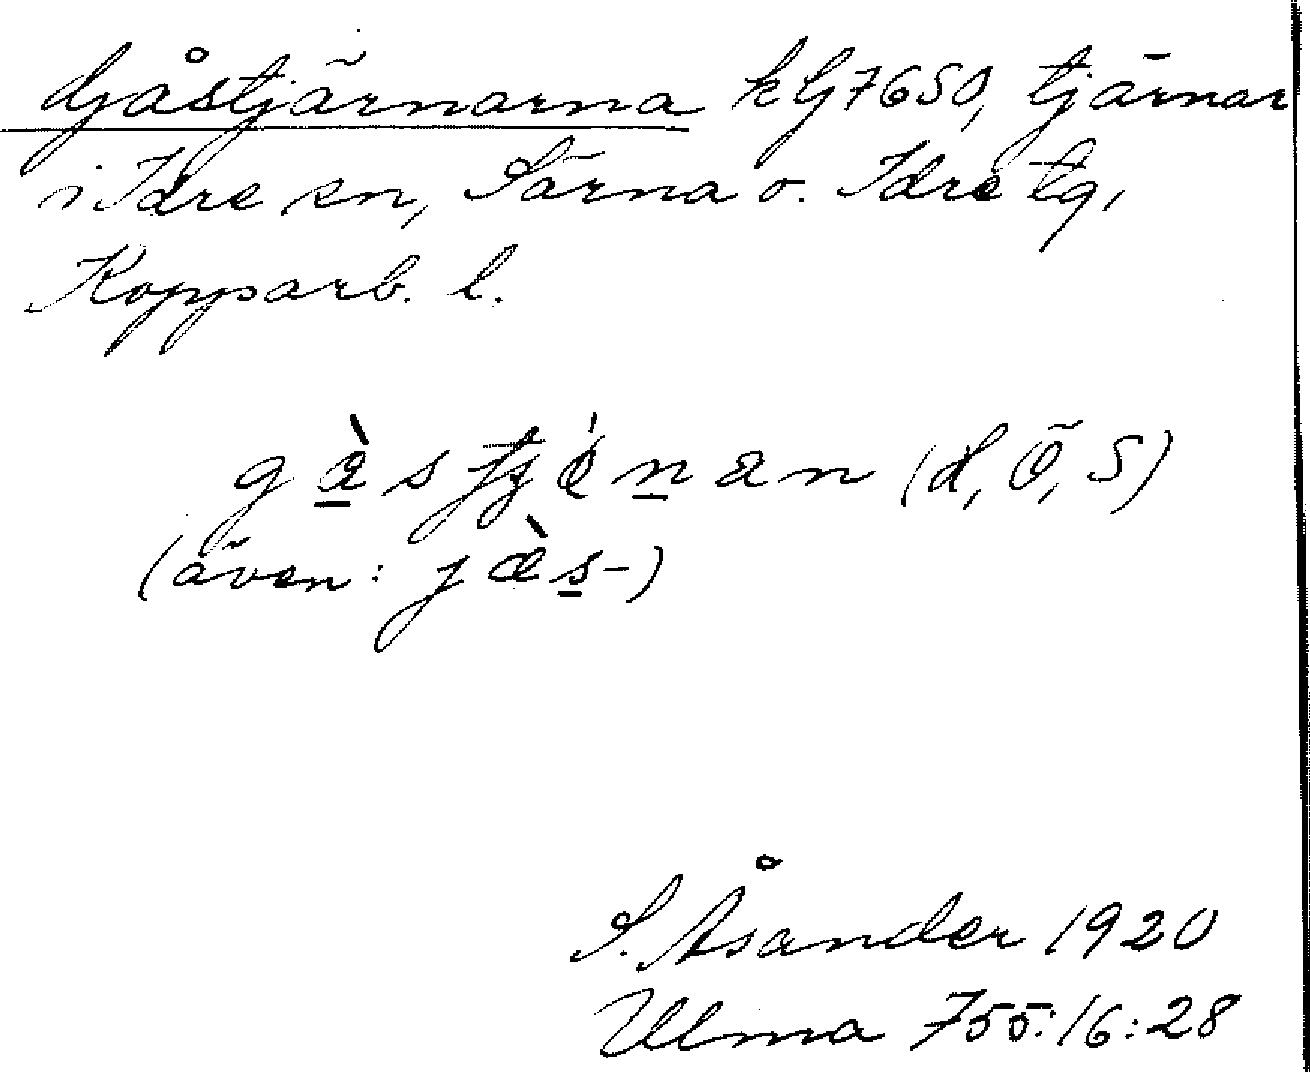 Gåstjärnarna kG7650, tjärnar
i Idre sn, Särna o. Idre tg,
Kopparb. l.
(d, Ö, S)
(även: jæ̀s-)
S. Åsander 1920
Ulma 755:16:28